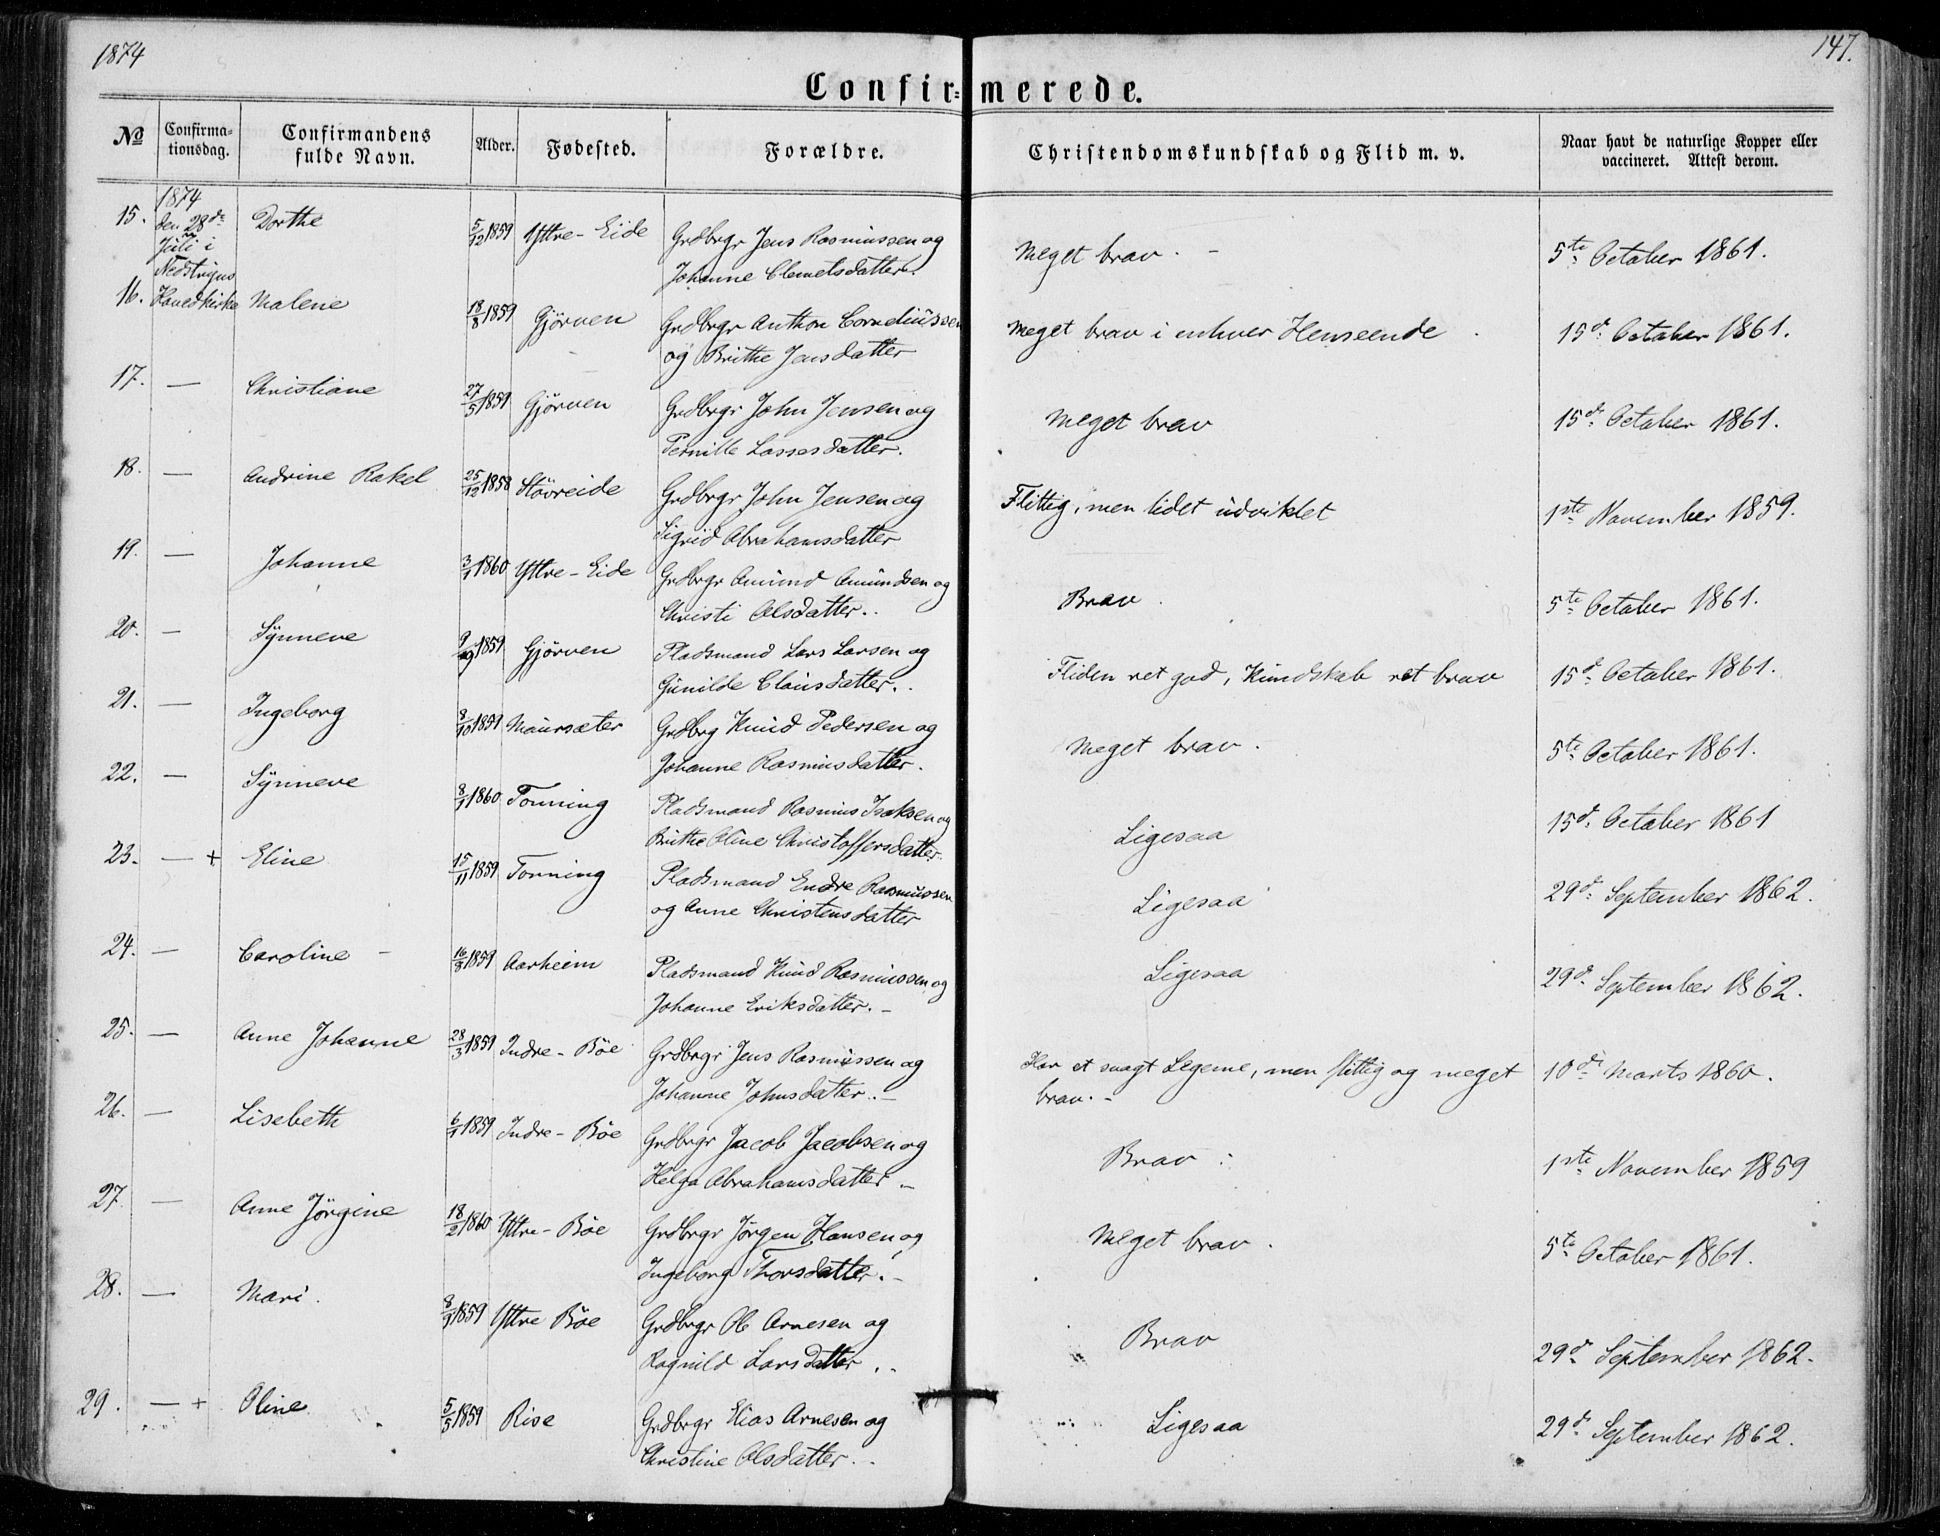 1874
147.
Confirmerede.
№ Confirmationsdag. Confirmandens fulde Navn. Alder. Fødested. Forældre. Christendomskundskab og Flid m. v. Naar havt de naturlige Kopper eller vaccineret. Attest derom.
1874
15. den 28de Dorthe 5/12 1859 Yttre-Eide Grdbrgr Jens Rasmussen og Meget brav. - 5te October 1861.
Juli i
Nedstryns Johanne Clemetsdatter.
16. Hovedkirke Malene 18/8 1859 Gjørven Grdbrgr Anthon Corneliussen Meget brav i enhver Henseende. 15d. October 1861.
og Brithe Jensdatter
17. — Christiane 27/5 1859 Gjørven Grdbrgr John Jensen og Meget brav 15d. October 1861.
Pernille Lassesdatter.
18. — Andrine Rakel 25/12 1858 Støvreide Grdbrgr John Jensen og Flittig, men lidet udviklet 1ste November 1859.
Sigrid Abrahamsdatter
19. — Johanne 3/1 1860 Yttre-Eide Grdbrgr Amund Amundsen og Brav. 5te October 1861.
Christi Olsdatter..
20. — Synneve 9/9 1859 Gjørven Pladsmand Lars Larsen og Fliden ret god, Kundskab ret brav 15d. October 1861.
Gunilde Clausdatter..
21. — Ingeborg 8/10 1859 Maursæter Grdbrg Knud Pedersen og Meget brav. 5te October 1861.
Johanne Rasmusdatter.
22. — Synneve 8/1 1860 Tonning Pladsmand Rasmus Isaksen og Ligesaa 15d. October 1861
Brithe Oline Christoffersdatter.
23. — + Eline 15/11 1859 Tonning Pladsmand Endre Rasmussen Ligesaa 29d. September 1862.
og Anne Christensdatter
24. — Caroline - 16/8 1859 Aarheim Pladsmand Knud Rasmussen og Ligesaa 29d. September 1862.
Johanne Eriksdatter. -
25. — Anne Johanne 28/3 1859 Indre-Bøe Grdbrgr Jens Rasmussen og Har et svagt Legeme, men flittig og meget 10d. Marts 1860.
Johanne Johnsdatter. - brav. -
26. — Lisebeth 6/1 1859 Indre-Bøe Grdbrgr Jacob Jacobsen og Brav : 1ste November 1859
Helga Abrahamsdatter -
27. — Anne Jørgine 18/2 1860 Yttre-Bøe Grdbrgr Jørgen Hansen og Meget brav. 5te October 1861.
Ingeborg Thorsdatter. -
28. — Mari. 8/9 1859 Yttre Bøe Grdbrgr Ole Arnesen og Brav 29d. September 1862.
Ragnild Larsdatter. -
29. — + Oline 5/5 1859 Rise Grdbrgr Elias Arnesen og Ligesaa 29d. September 1862.
Christine Olsdatter. -